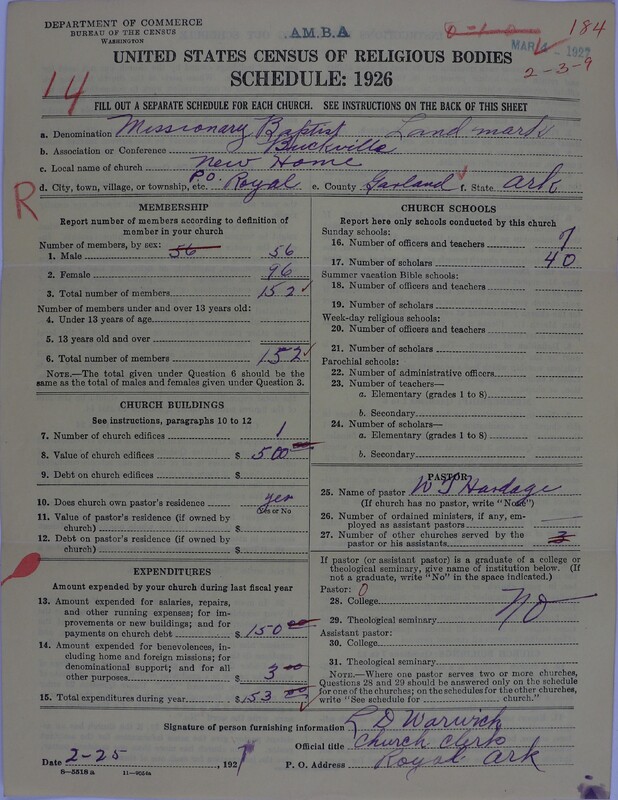 DEPARTMENT OF COMMERCE
BUREAU OF THE CENSUS
WASHINGTON
A.M.B.A
184
MAR 4 1927
2-3-9
UNITED STATES CENSUS OF RELIGIOUS BODIES
SCHEDULE: 1926
14
FILL OUT A SEPARATE SCHEDULE FOR EACH CHURCH. SEE INSTRUCTIONS ON THE BACK OF THIS SHEET
a. Denomination Missionary Baptist Land mark
b. Association or Conference Buckville
c. Local name of church New Home
d. City, town, village, or township, etc. P.O. Royal e. County Garland f. State Ark
R
MEMBERSHIP
Report number of members according to definition of member in your church
Number of members, by sex:
1. Male 56 56
2. Female 96
3. Total number of members 152
Number of members under and over 13 years old:
4. Under 13 years of age
5. 13 years old and over
6. Total number of members 152
NOTE.—The total given under Question 6 should be
same as the total of males and females given under Question 3.
CHURCH BUILDINGS
See instructions, paragraphs 10 to 12
7. Number of church edifices 1
8. Value of church edifices $ 500 00
9. Debt on church edifices $
10. Does church own pastor's residence yes
(Yes or No)
11. Value of pastor's residence (if owned by
church) $
12. Debt on pastor's residence (if owned by
church) $
EXPENDITURES
Amount expended by your church during last fiscal year
13. Amount expended for salaries, repairs,
and other running expenses; for im-
provements or new buildings; and for
payments on church debt $ 150 00
14. Amount expended for benevolences, in-
cluding home and foreign missions; for
denominational support; and for all
other purposes $ 3 00
15. Total expenditures during year $ 153 00
CHURCH SCHOOLS
Report here only schools conducted by this church
Sunday schools:
16. Number of officers and teachers 7
17. Number of scholars 40
Summer vacation Bible schools:
18. Number of officers and teachers
19. Number of scholars
Week-day religious schools:
20. Number of officers and teachers
21. Number of scholars
Parochial schools:
22. Number of administrative officers
23. Number of teachers—
a. Elementary (grades 1 to 8)
b. Secondary
24. Number of scholars—
a. Elementary (grades 1 to 8)
b. Secondary
PASTOR
25. Name of pastor W J Hardage
(If church has no pastor, write "None")
26. Number of ordained ministers, if any, em-
ployed as assistant pastors —
27. Number of other churches served by the
pastor or his assistants 3
If pastor (or assistant pastor) is a graduate of a college or
theological seminary, give name of institution below. (If
not a graduate, write "No" in the space indicated.)
Pastor: 0
28. College
29. Theological seminary No
Assistant pastor:
30. College
31. Theological seminary
NOTE.—Where one pastor serves two or more churches,
Questions 28 and 29 should be answered only on the schedule
for one of the churches; on the schedules for the other churches,
write "See schedule for church."
Signature of person furnishing information L D Warwich
Official title Church Clerk
Date 2-25, 1927 P. O. Address Royal Ark
8—5518 a 11—9554a